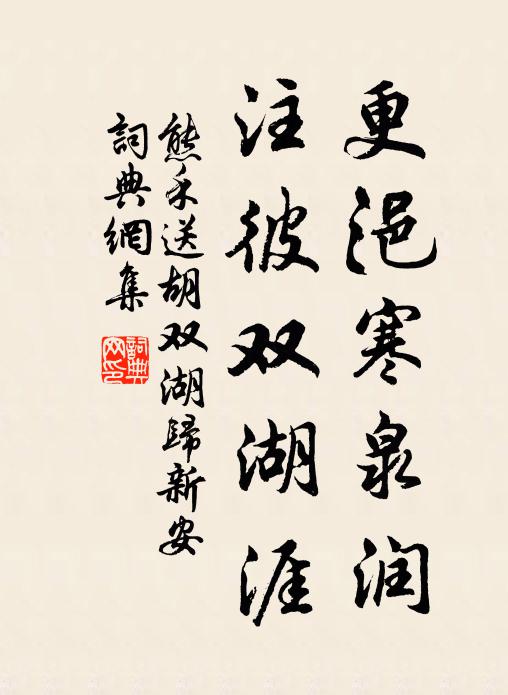 更浥寒泉润
注彼双湖涯
熊禾送胡双湖歸新安
詞典網集
詞典网印